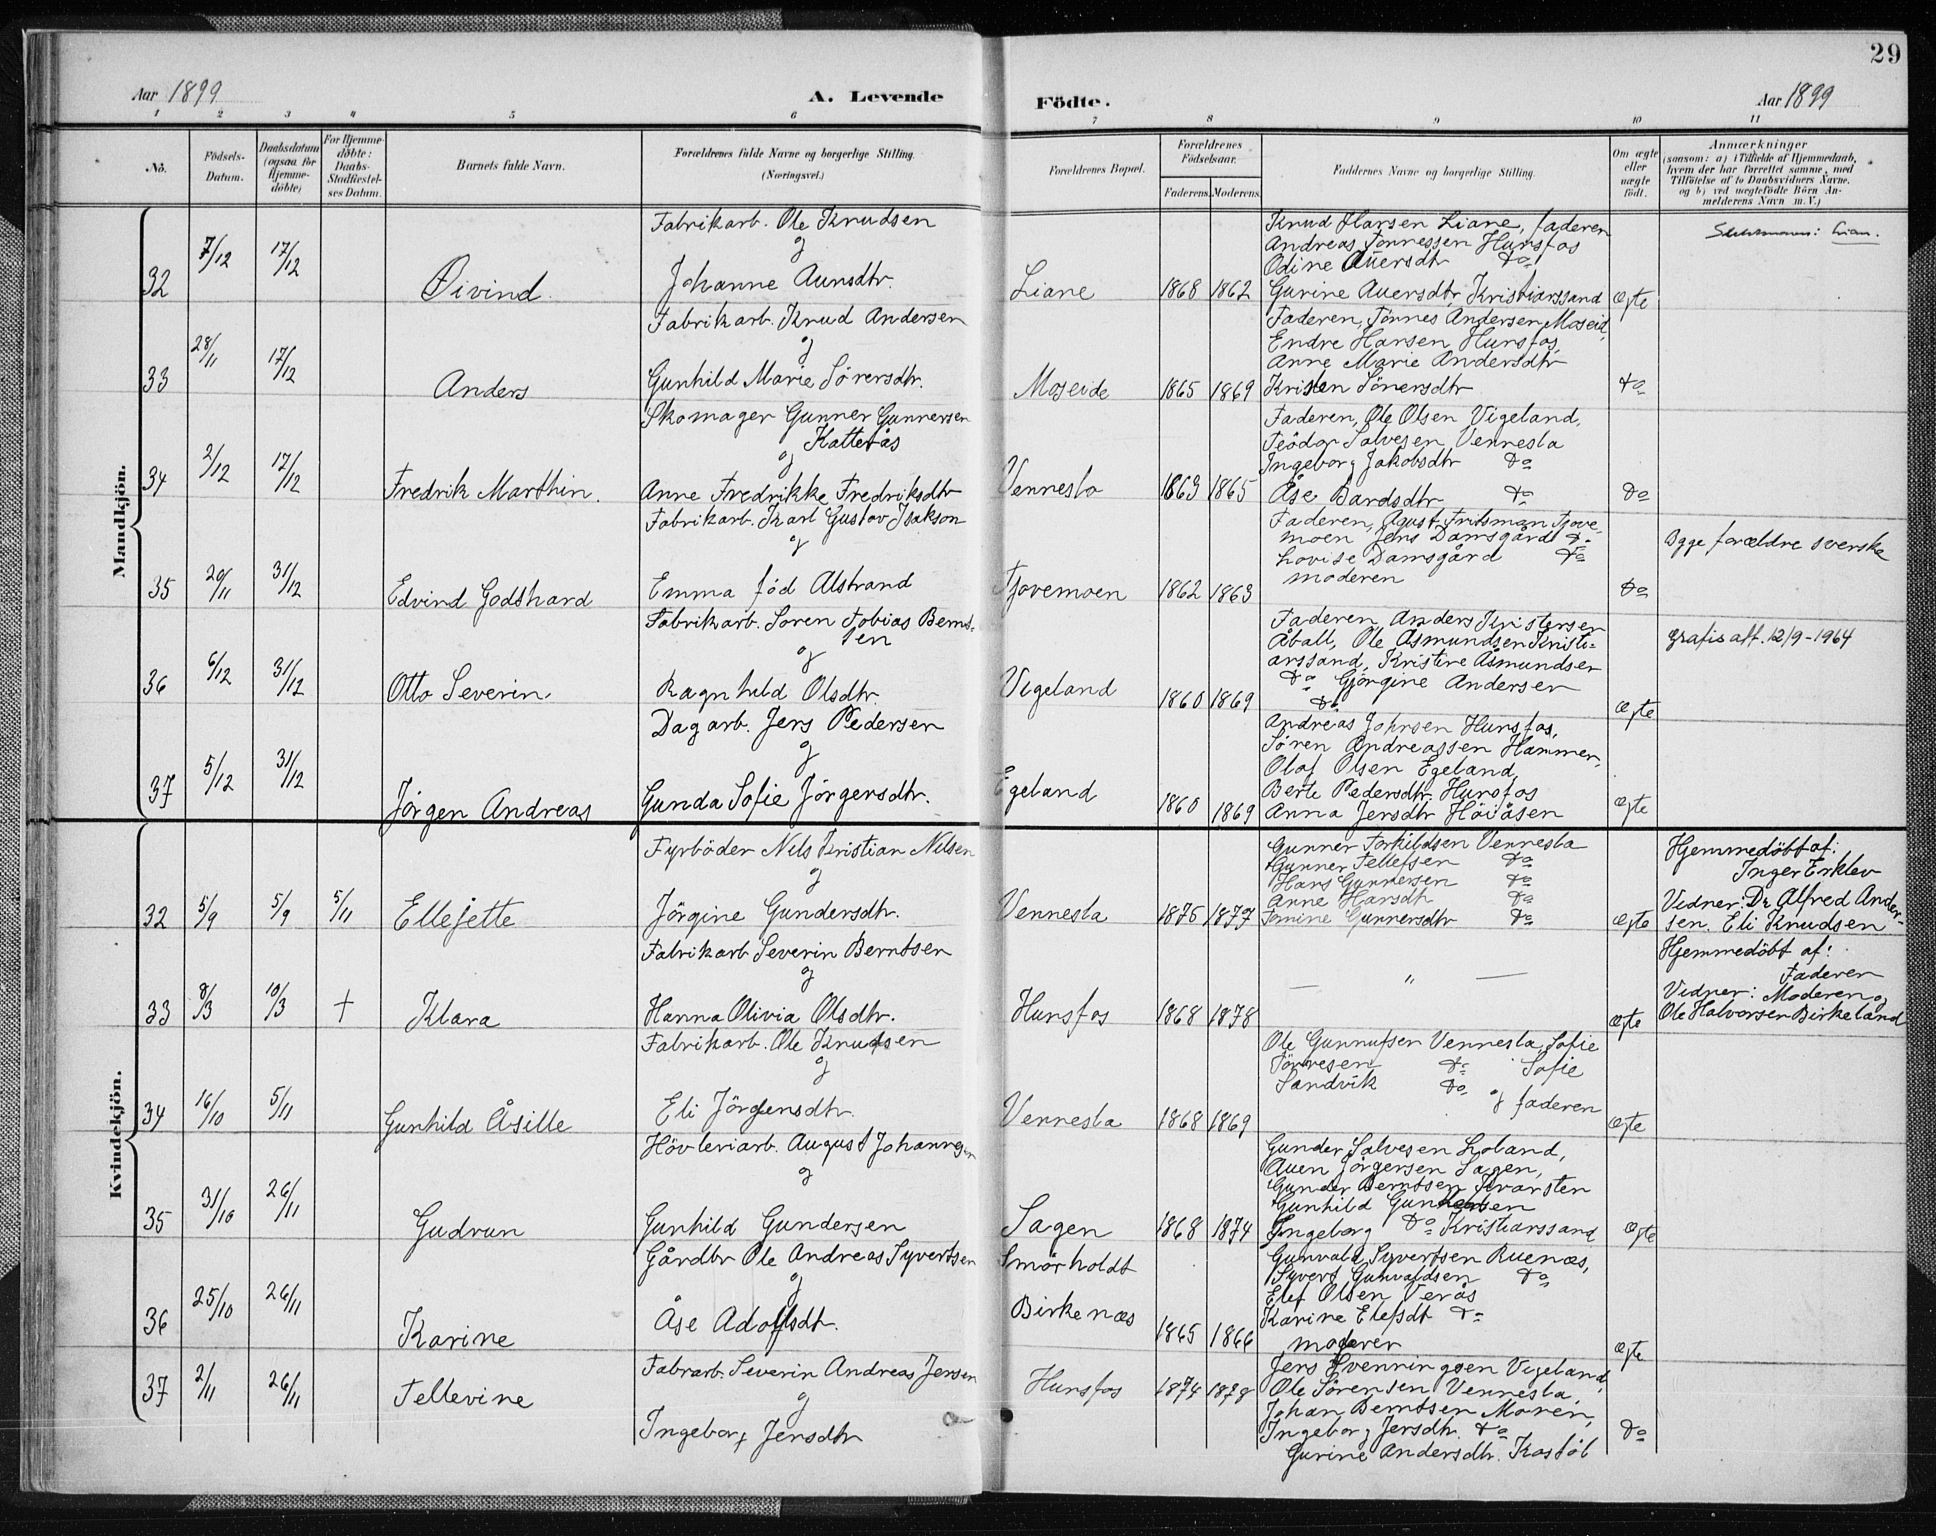 29
Aar 1899
A. Levende
Födte.
Aar 1899
1 2 3 4 5 6 7 8 9 10 11
No.
Födsels-
Datum.
Daabsdatum
(ogsaa for
Hjemme-
döbte)
For Hjemme-
døbte:
Daabs-
Stadfæstel-
ses Datum.
Barnets fulde Navn.
Forældrenes fulde Navne og borgerlige Stilling.
(Næringsvei.)
Forældrenes Bopæl.
Forældrenes
Födselsaar.
Faderens. Moderens.
Faddernes Navne og borgerlige Stilling.
Om ægte
eller
uægte
födt.
Anmærkninger
(saasom: a) i Tilfælde af Hjemmedaab,
hvem der har forrettet samme, med
Tilföielse af to Daabsvidners Navne,
og b) ved uægtefödte Börn An-
melderens Navn m. V.)
Mandkjön.
32 7/12 17/12 Öivind
Fabrikarb. Ole Knudsen
og
Johanne Aunsdtr.
Liane 1868 1862
Knud Hansen Liane, faderen
Andreas Tönnessen Hunsfos
Odine Auensdtr do
Gurine Auensdtr, Kristianssand
Ægte
Slektsnavn: Lian.
33 28/11 17/12 Anders
Fabrikarb. Knud Andersen
og
Gunhild Marie Sörensdtr.
Moseide 1865 1869
Faderen, Tönnes Andersen Moseid,
Endre Hansen Hunsfos,
Anne Marie Andersdtr
Kristen Sörensdtr
do
34 2/12 17/12 Fredrik Marthin.
Skomager Gunner Gunnersen
Katterås
og
Anne Fredrikke Fredriksdtr
Vennesla 1863 1865
Faderen, Ole Olsen Vigeland,
Teodor Salvesen Vennesla
Ingeborg Jakobsdtr do
Åse Bardsdtr do
do
35 20/11 31/12 Edvind Godthard
Fabrikarb. Karl Gustav Isakson
og
Emma föd Alstrand
Tjovemoen 1862 1863
Faderen, Agust Fritsman Tjove-
moen Jens Damsgård do
Lovise Damsgård do
moderen
do
Bgge forældre svenske
36 6/12 31/12 Otto Severin.
Fabrikarb. Soren Tobias Bernt-
sen
og
Ragnhild Olsdtr.
Vigeland 1860 1869
Faderen, Anders Kristensen
Åball, Ole Åsmundsen Kristi-
anssand, Kristine Åsmundsen
do Gjörgine Andersen
do
Ægte
gratis att. 12/9-1964
37 5/12 31/12 Jörgen Andreas
Dagarb. Jens Pedersen
og
Gunda Sofie Jörgensdtr.
Egeland 1860 1869
Andreas Johnsen Hunsfos,
Sören Andreassen Hammer,
Olaf Olsen Egeland,
Berte Pedersdtr. Hunsfos
Anna Jensdtr Höiåsen
Ægte
Kvindekjön.
32 5/9 5/9 5/11 Ellejette
Fyrböder Nils Kristian Nilsen
og
Jörgine Gundersdtr.
Vennesla 1876 1877
Gunner Torkildsen Vennesla
Gunner Tellefsen do
Hans Gunnersen do
Anne Hansdtr do
Tomine Gunnersdtr do
Ægte
Hjemmedöbt af:
Inger Erklev
Vidner: Dr Alfred Ander-
sen. Eli Knudsen
33 8/3 10/3 † Klara
Fabrikarb Severin Berntsen
og
Hanna Olivia Olsdtr.
Hunsfos 1868 1878
— " —
Ægte
Hjemmedöbt af:
Faderen
Vidner: Moderen og
Ole Halvorsen Birkeland
34 16/10 5/11 Gunhild Åsille
Fabrikarb. Ole Knutsen
og
Eli Jörgensdtr
Vennesla 1868 1869
Ole Gunnufsen Vennesla, Sofie
Tönnesen do Sofie
Sandvik do
og faderen
Ægte
35 31/10 26/11 Gudrun
Hövleriarb. August Johannesen
og
Gunhild Gundersen
Sagen 1868 1874
Gunder Salvesen Loland,
Auen Jörgensen Sagen,
Gunder Berntsen Kvarsten
Gunhild Gundersen
Ingeborg do Kristianssand
Ægte
36 25/10 26/11 Karine
Gårdbr Ole Andreas Syvertsen
og
Åse Adolfsdt.
Smörholdt
Birkenæs
1865 1866
Gunvald Syvertsen Ruenæs,
Syvert Gunvaldsen do
Elef Olsen Verås
Karine Elefsdt do
moderen
Ægte
37 2/11 26/11 Tellevine
Fabrarb. Severin Andreas Jensen
og
Ingeborg Jensdtr
Hunsfos 1874 1878
Jens Henningsen Vigeland,
Ole Sörensen Vennesla,
Johan Berntsen Moren,
Ingeborg Jensdtr. do
Gurine Andersdtr. Kosföl
do